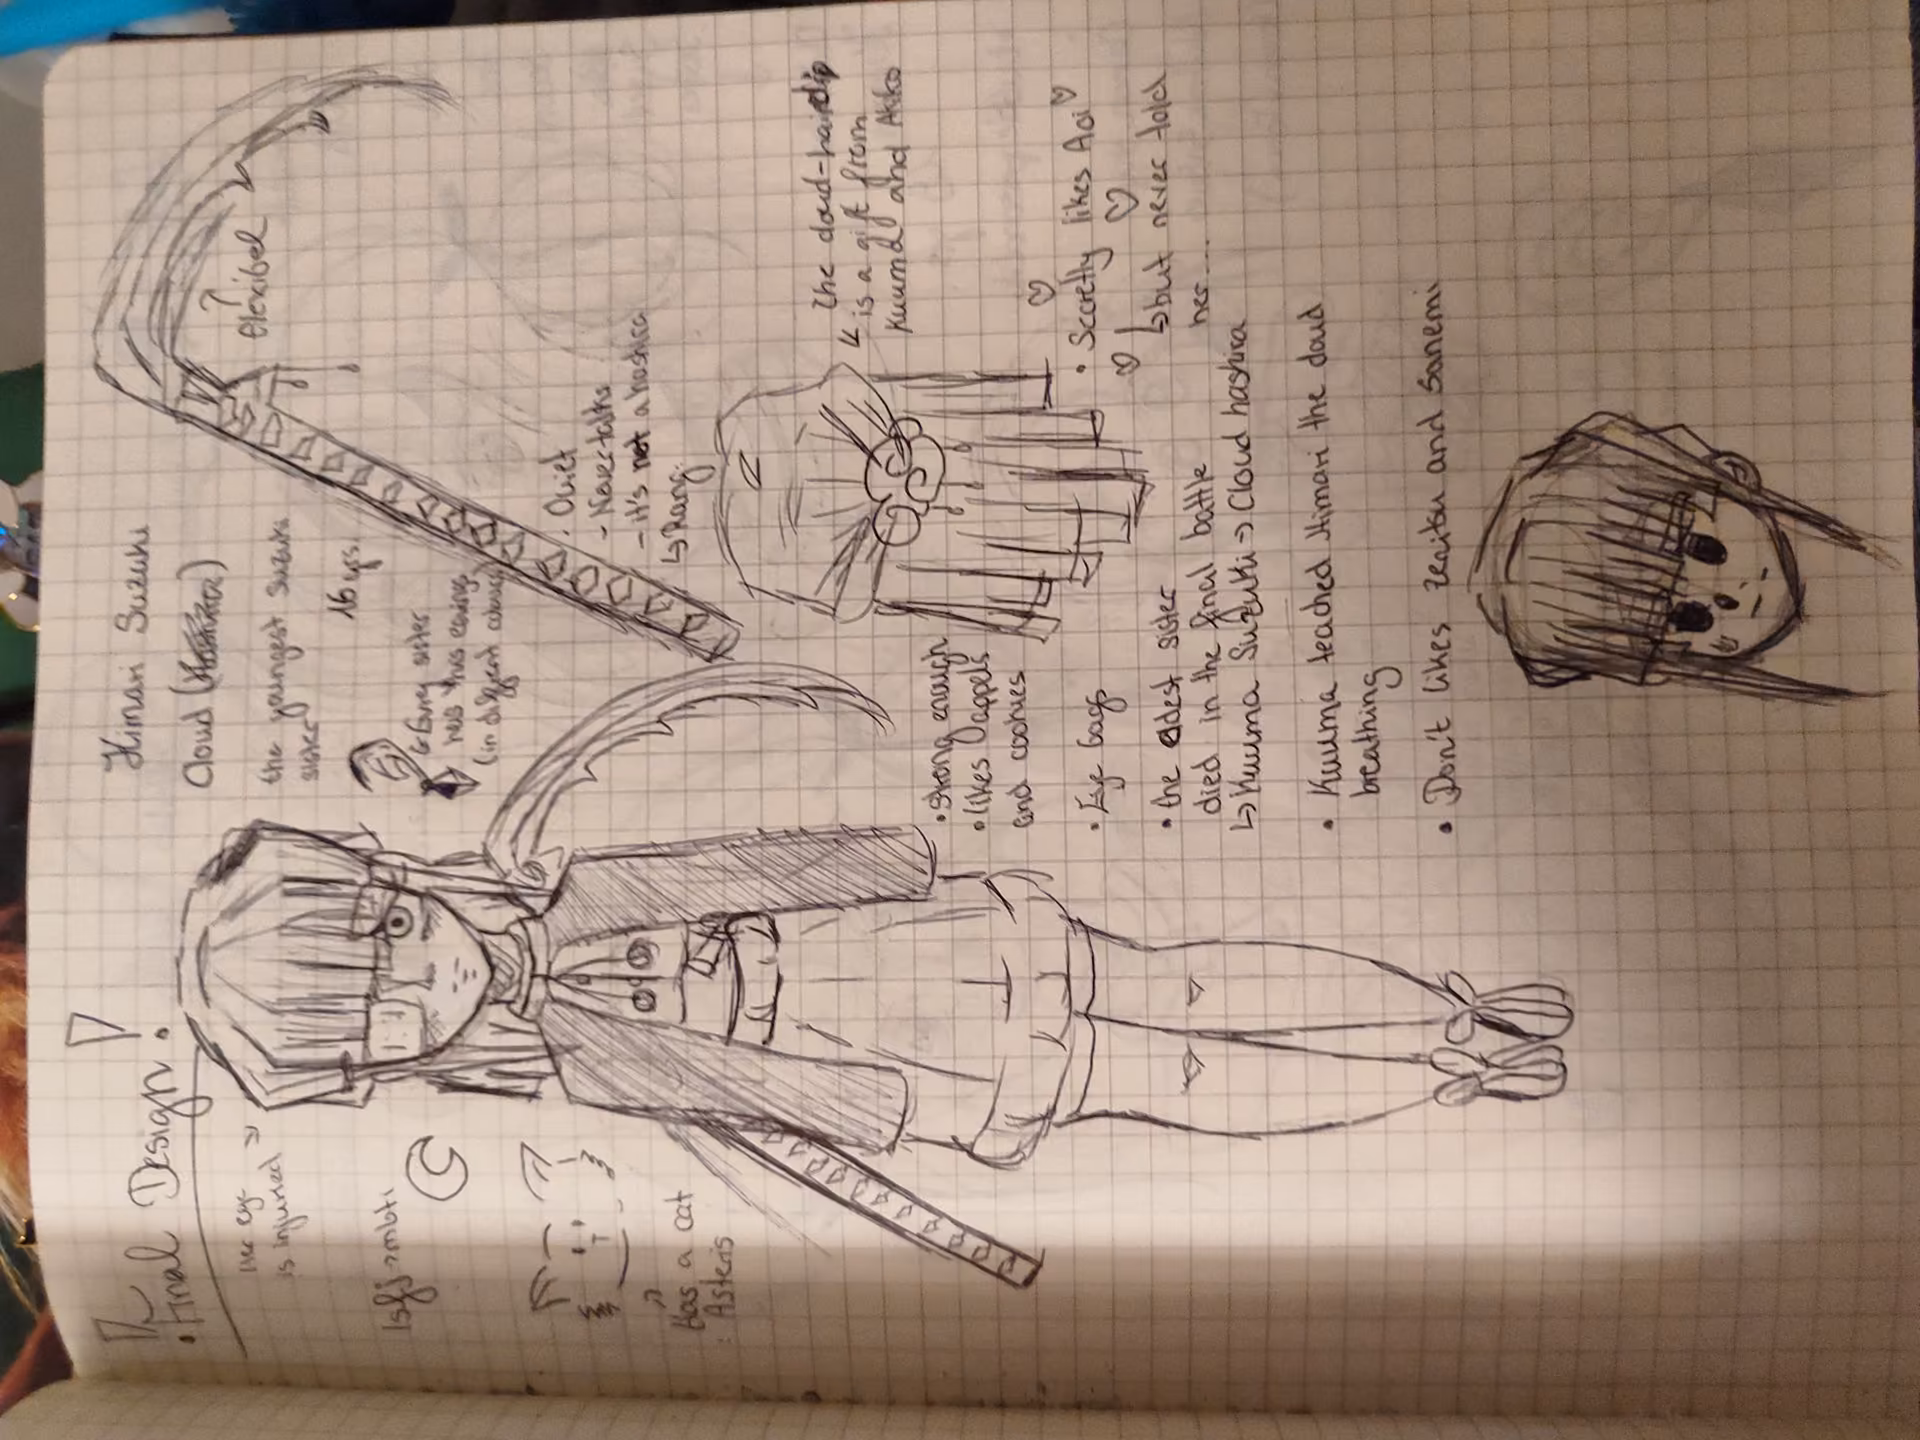 • Final Design •
one eye
is injured
isfj → mbti
Has a cat
: Asteris
Himari Suzuki
Cloud
the youngest Suzuki
sister
16 ys.
Every sister
has this earing
flexibel
• Quiet
- Never talks
- it's not a hashira
↳ Rang
the cloud-hairclip
is a gift from
Kuuma and Akiko
• Strong enough
• likes
and cookies
• Eye bags
• the eldest sister
died in the final battle
↳ Kuuma Suzuki → Cloud hashira
• Secretly likes Aoi ♡
↳ but never told
her....
• Kuuma teached Himari the cloud
breathing
• Don't likes Zenitsu and Sanemi